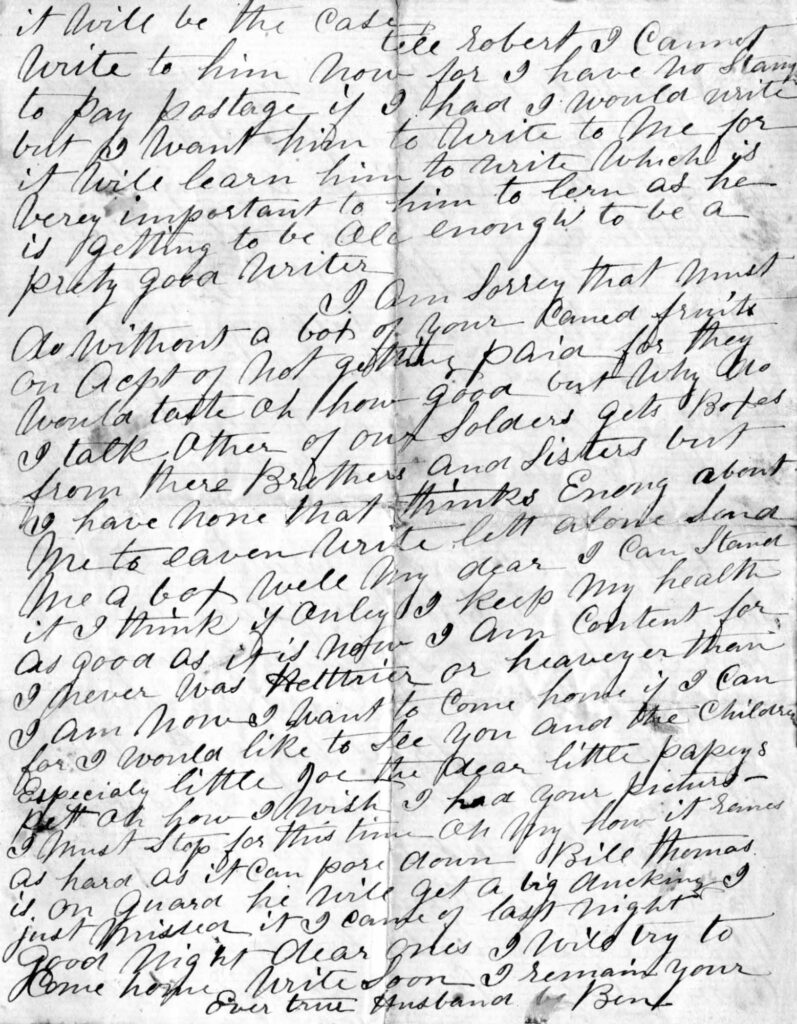 it will be the case
tell Robert I Cannot
write to him now for I have no Stamp
to pay postage if I had I would write
but I want him to write to Me for
it will learn him to write which is
verey important to him to lern as he
is getting to be old enough to be a
prety good writer
I Am Sorrey that must
do without a box of your Caned fruits
on Acpt of not getting paid for they
would taste oh how good but why do
I talk Other of our Soldiers gets Boxes
from there Brothers and Sisters but
I have none that thinks Enong about
Me to eaven write lett alone Send
Me a box well My dear I Can Stand
it I think if Onley I keep My health
as good as it is now I Am Content for
I never was Helthier or heaveyer than
I am now I want to Come home if I Can
for I would like to See you and the Children
Especialy little Joe the dear little papeys
pett Oh how I wish I had your picture
I Must Stop for this time Oh My how it Raines
as hard as it Can pore down Bill Thomas
is on guard he will get a big ducking I
just Missed it I came of last night
Good Night dear ones I will try to
Come home write Soon I remain your
Ever true Husband Ben